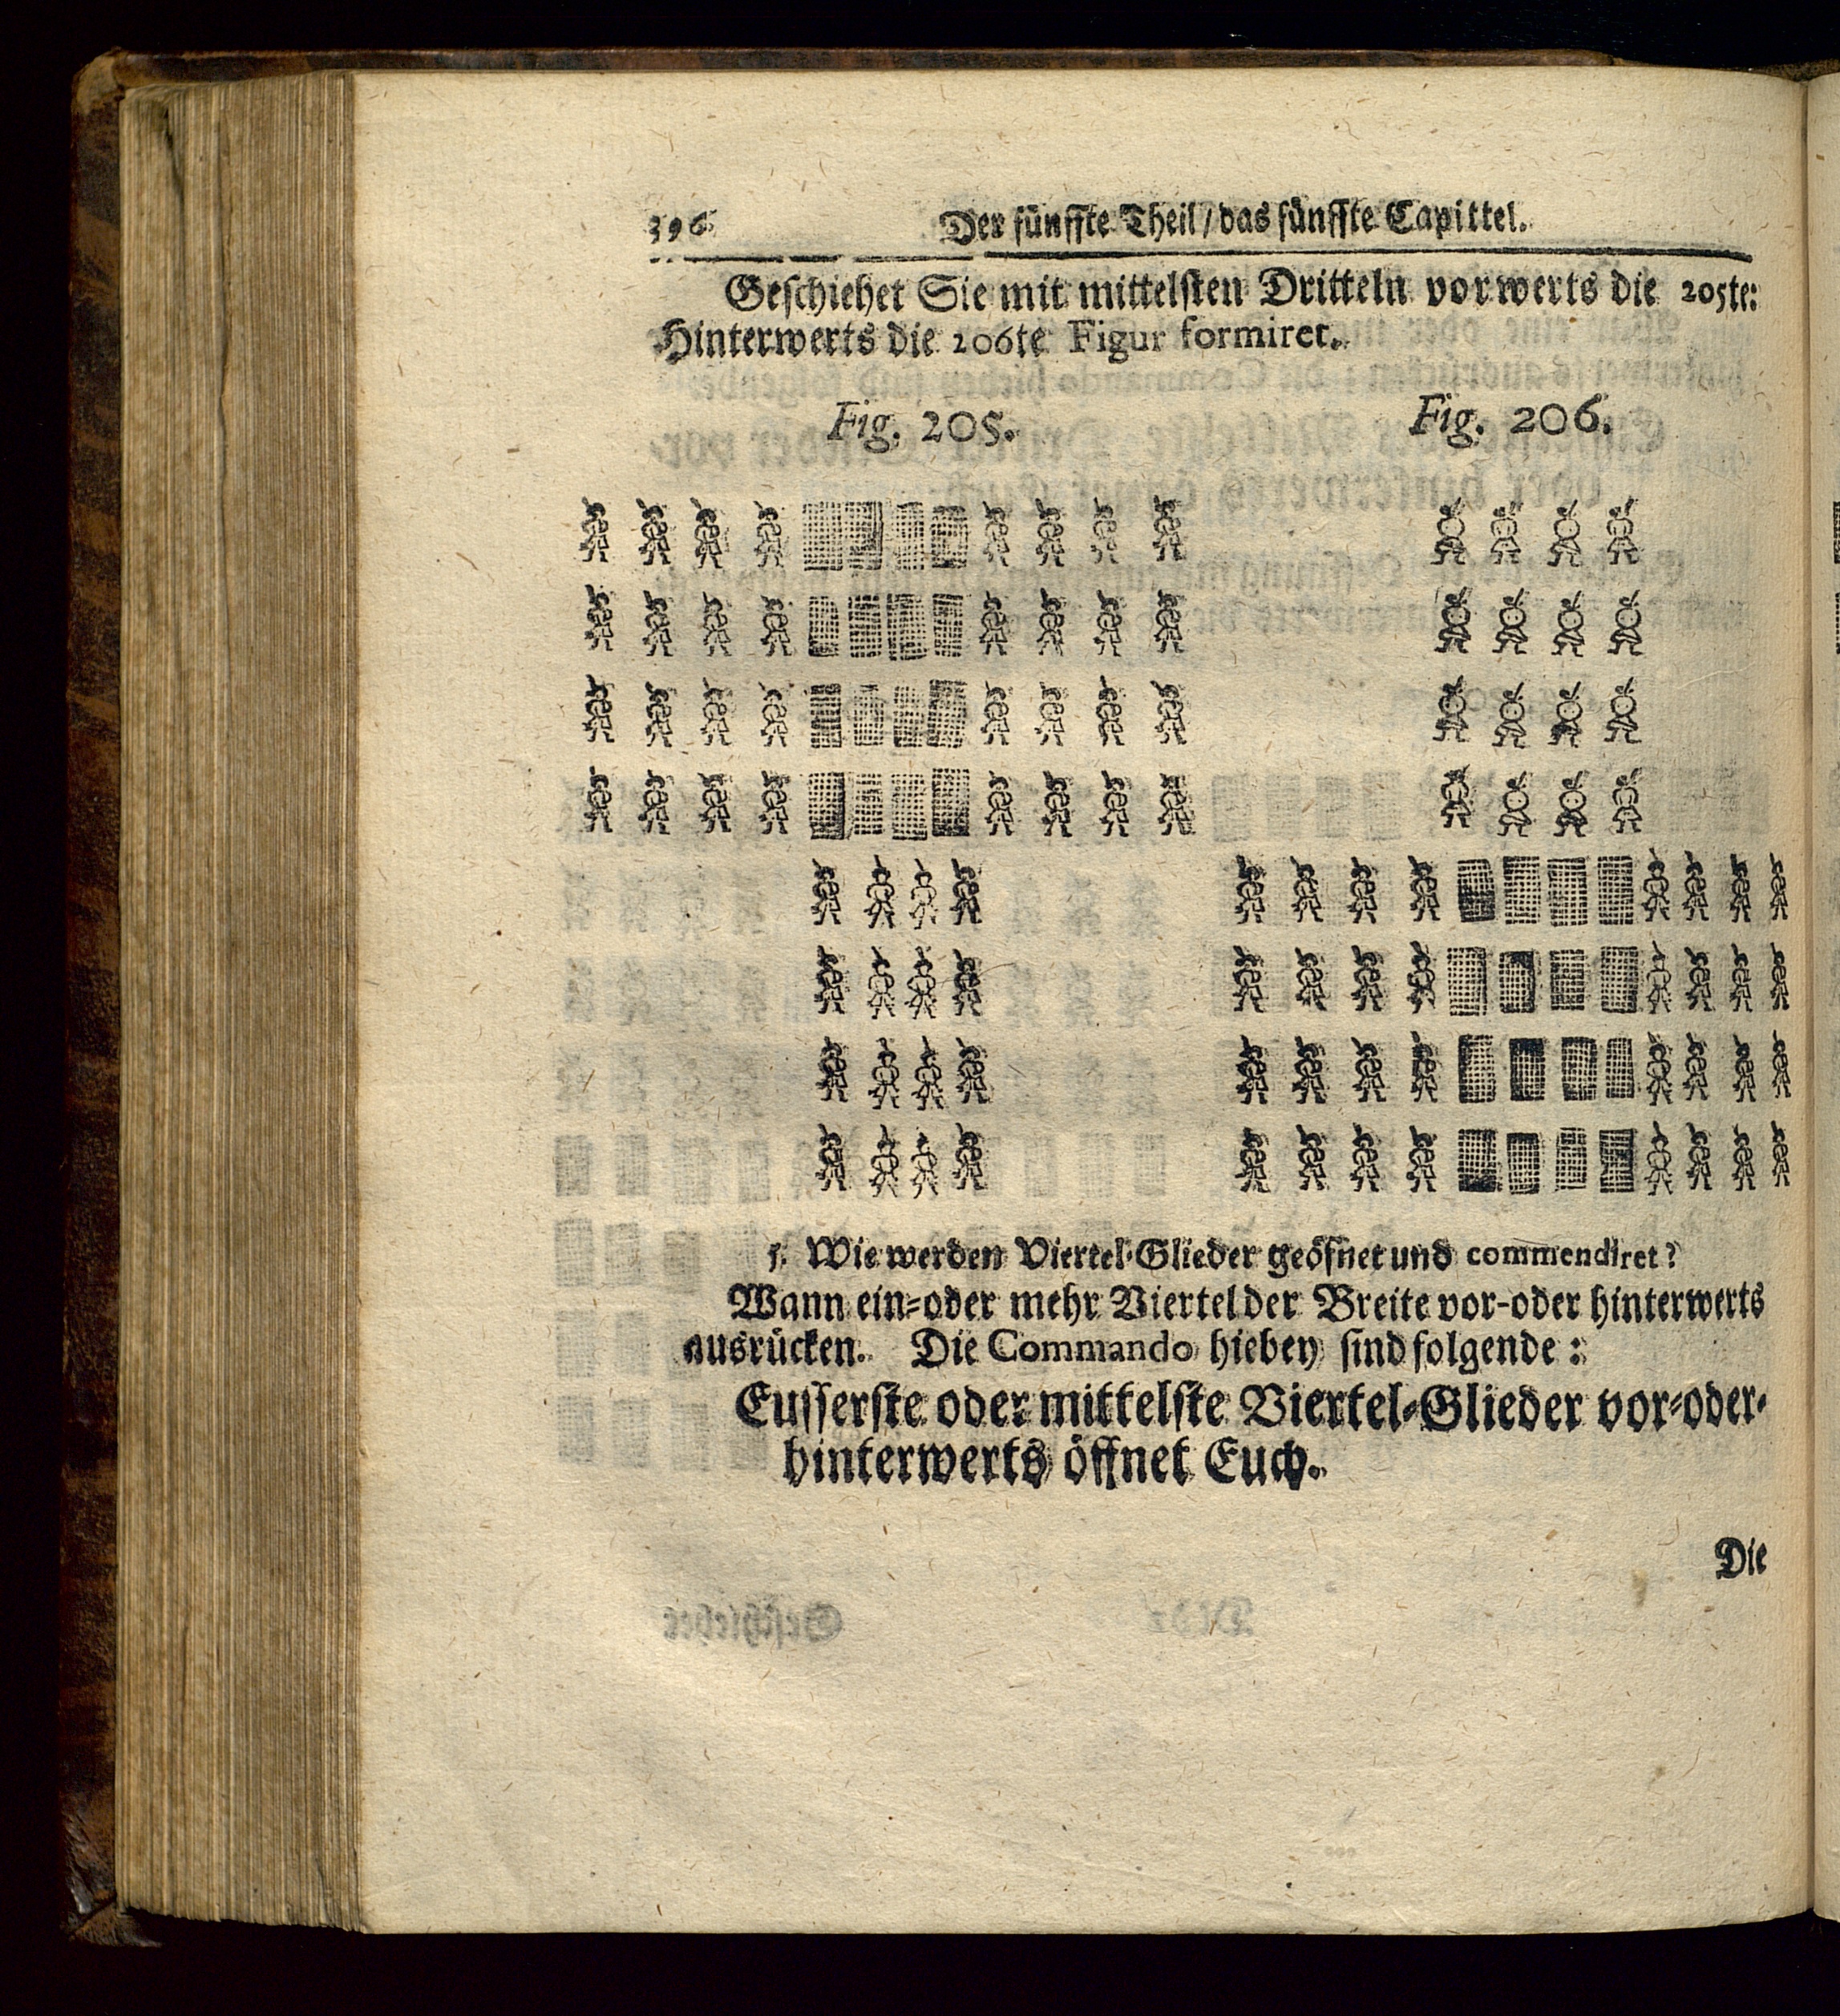 396 Der fünffte Theil / das fünffte Capittel.
Geschiehet Sie mit mittelsten Dritteln vorwerts die 205te:
Hinterwerts die 206te Figur formiret.
Fig. 205. Fig. 206.
5. Wie werden Viertel-Glieder geöfnet und commendiret?
Wann ein-oder mehr Viertel der Breite vor-oder hinterwerts
ausrücken. Die Commando hiebey sind folgende:
Eusserste oder mittelste Viertel-Glieder vor-oder-
hinterwerts öffnet Euch.
Die